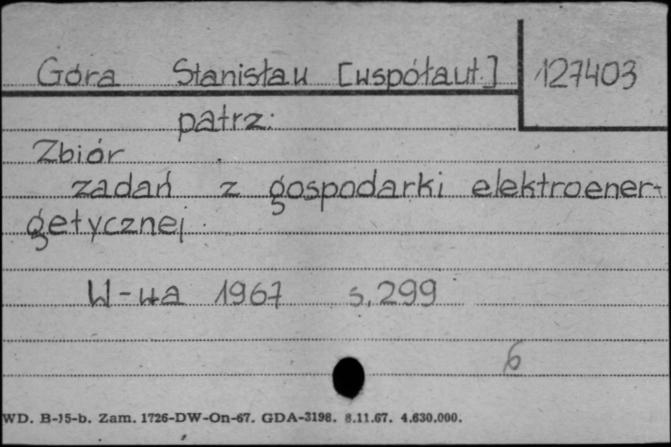 Góra Stanisław [współaut.] 127403
patrz:
Zbiór
zadań z gospodarki elektroener-
getycznej
W-wa 1967 s. 299
6
WD. B-15-b. Zam. 1726-DW-On-67. GDA-3198. 8.11.67. 4.630.000.